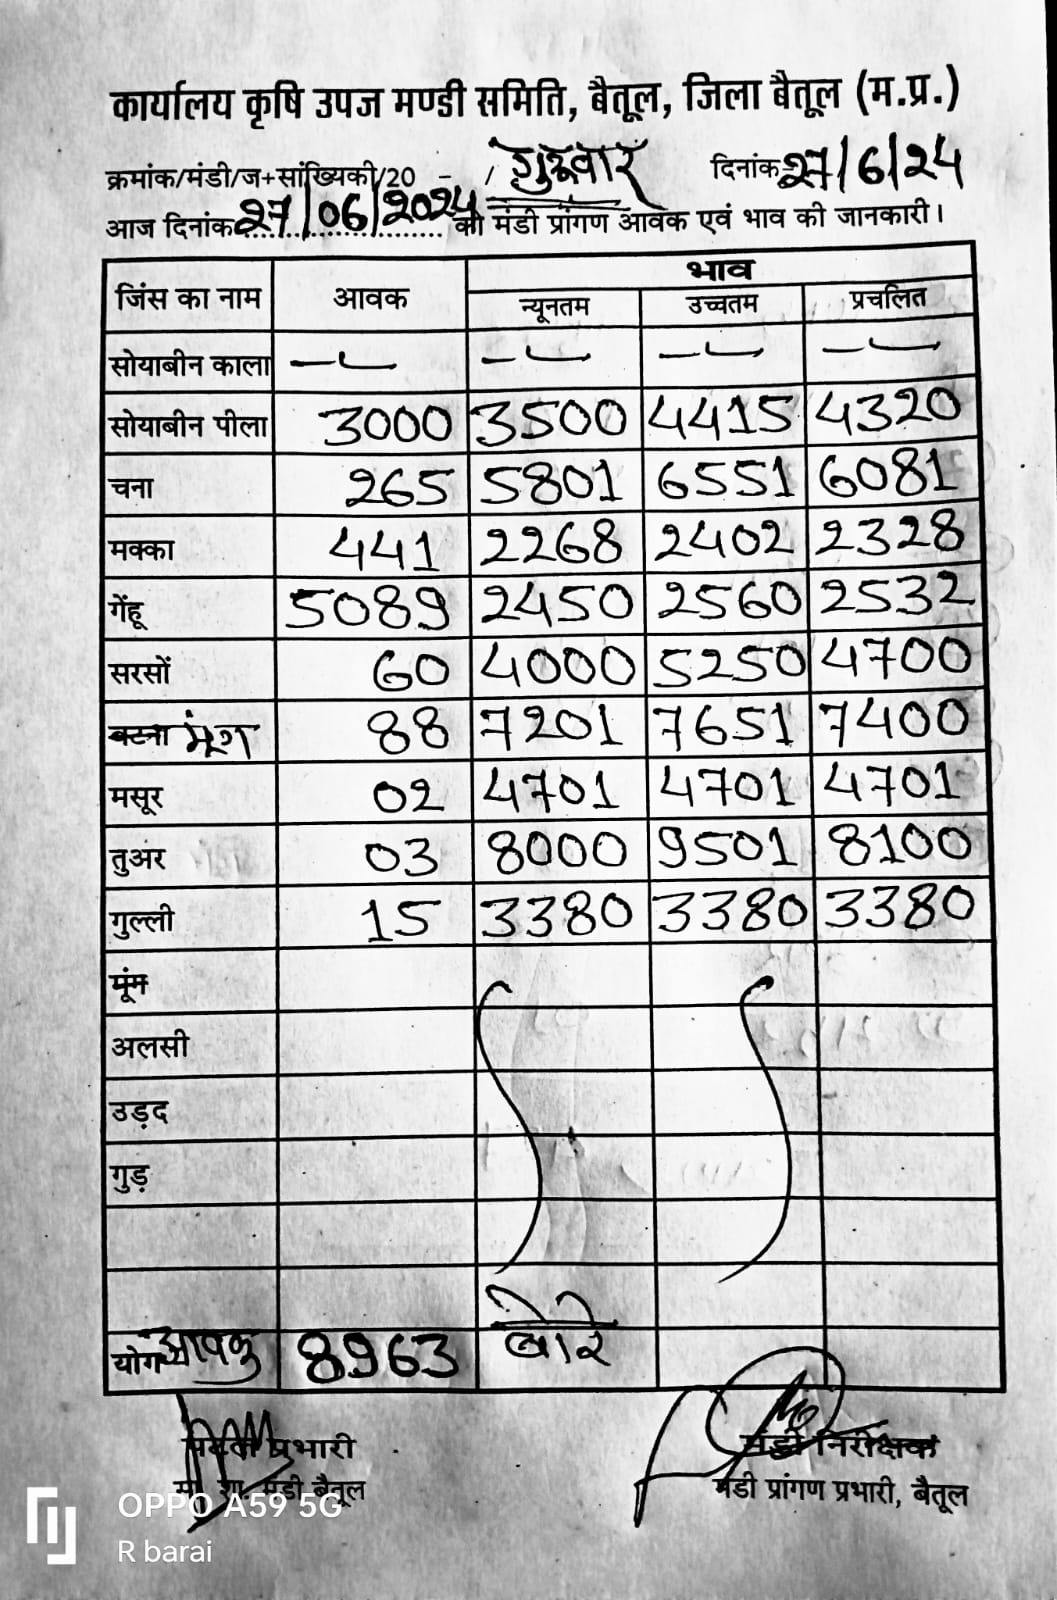 कार्यालय कृषि उपज मण्डी समिति, बैतूल, जिला बैतूल (म.प्र.)
क्रमांक/मंडी/ज+सांख्यिकी/20 - / गुरूवार दिनांक 27/6/24
आज दिनांक 27/06/2024 को मंडी प्रांगण आवक एवं भाव की जानकारी।
जिंस का नाम आवक भाव
न्यूनतम उच्चतम प्रचलित
सोयाबीन काला — — — —
सोयाबीन पीला 3000 3500 4415 4320
चना 265 5801 6551 6081
मक्का 441 2268 2402 2328
गेंहू 5089 2450 2560 2532
सरसों 60 4000 5250 4700
बटना मूंग 88 7201 7651 7400
मसूर 02 4701 4701 4701
तुअर 03 8000 9501 8100
गुल्ली 15 3380 3380 3380
मूंग
अलसी
उड़द
गुड़
योग आवक 8963 बोरे
प्रभारी मंडी निरीक्षक
मंडी बैतूल मंडी प्रांगण प्रभारी, बैतूल
OPPO A59 5G
R barai